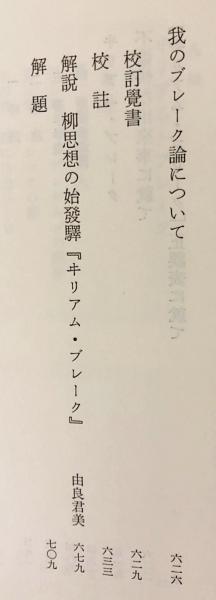 我のブレーク論について 六二六
校訂覺書 六二九
校註 六三三
解説 柳思想の始發驛『ヰリアム・ブレーク』 由良君美 六七九
解題 七〇九